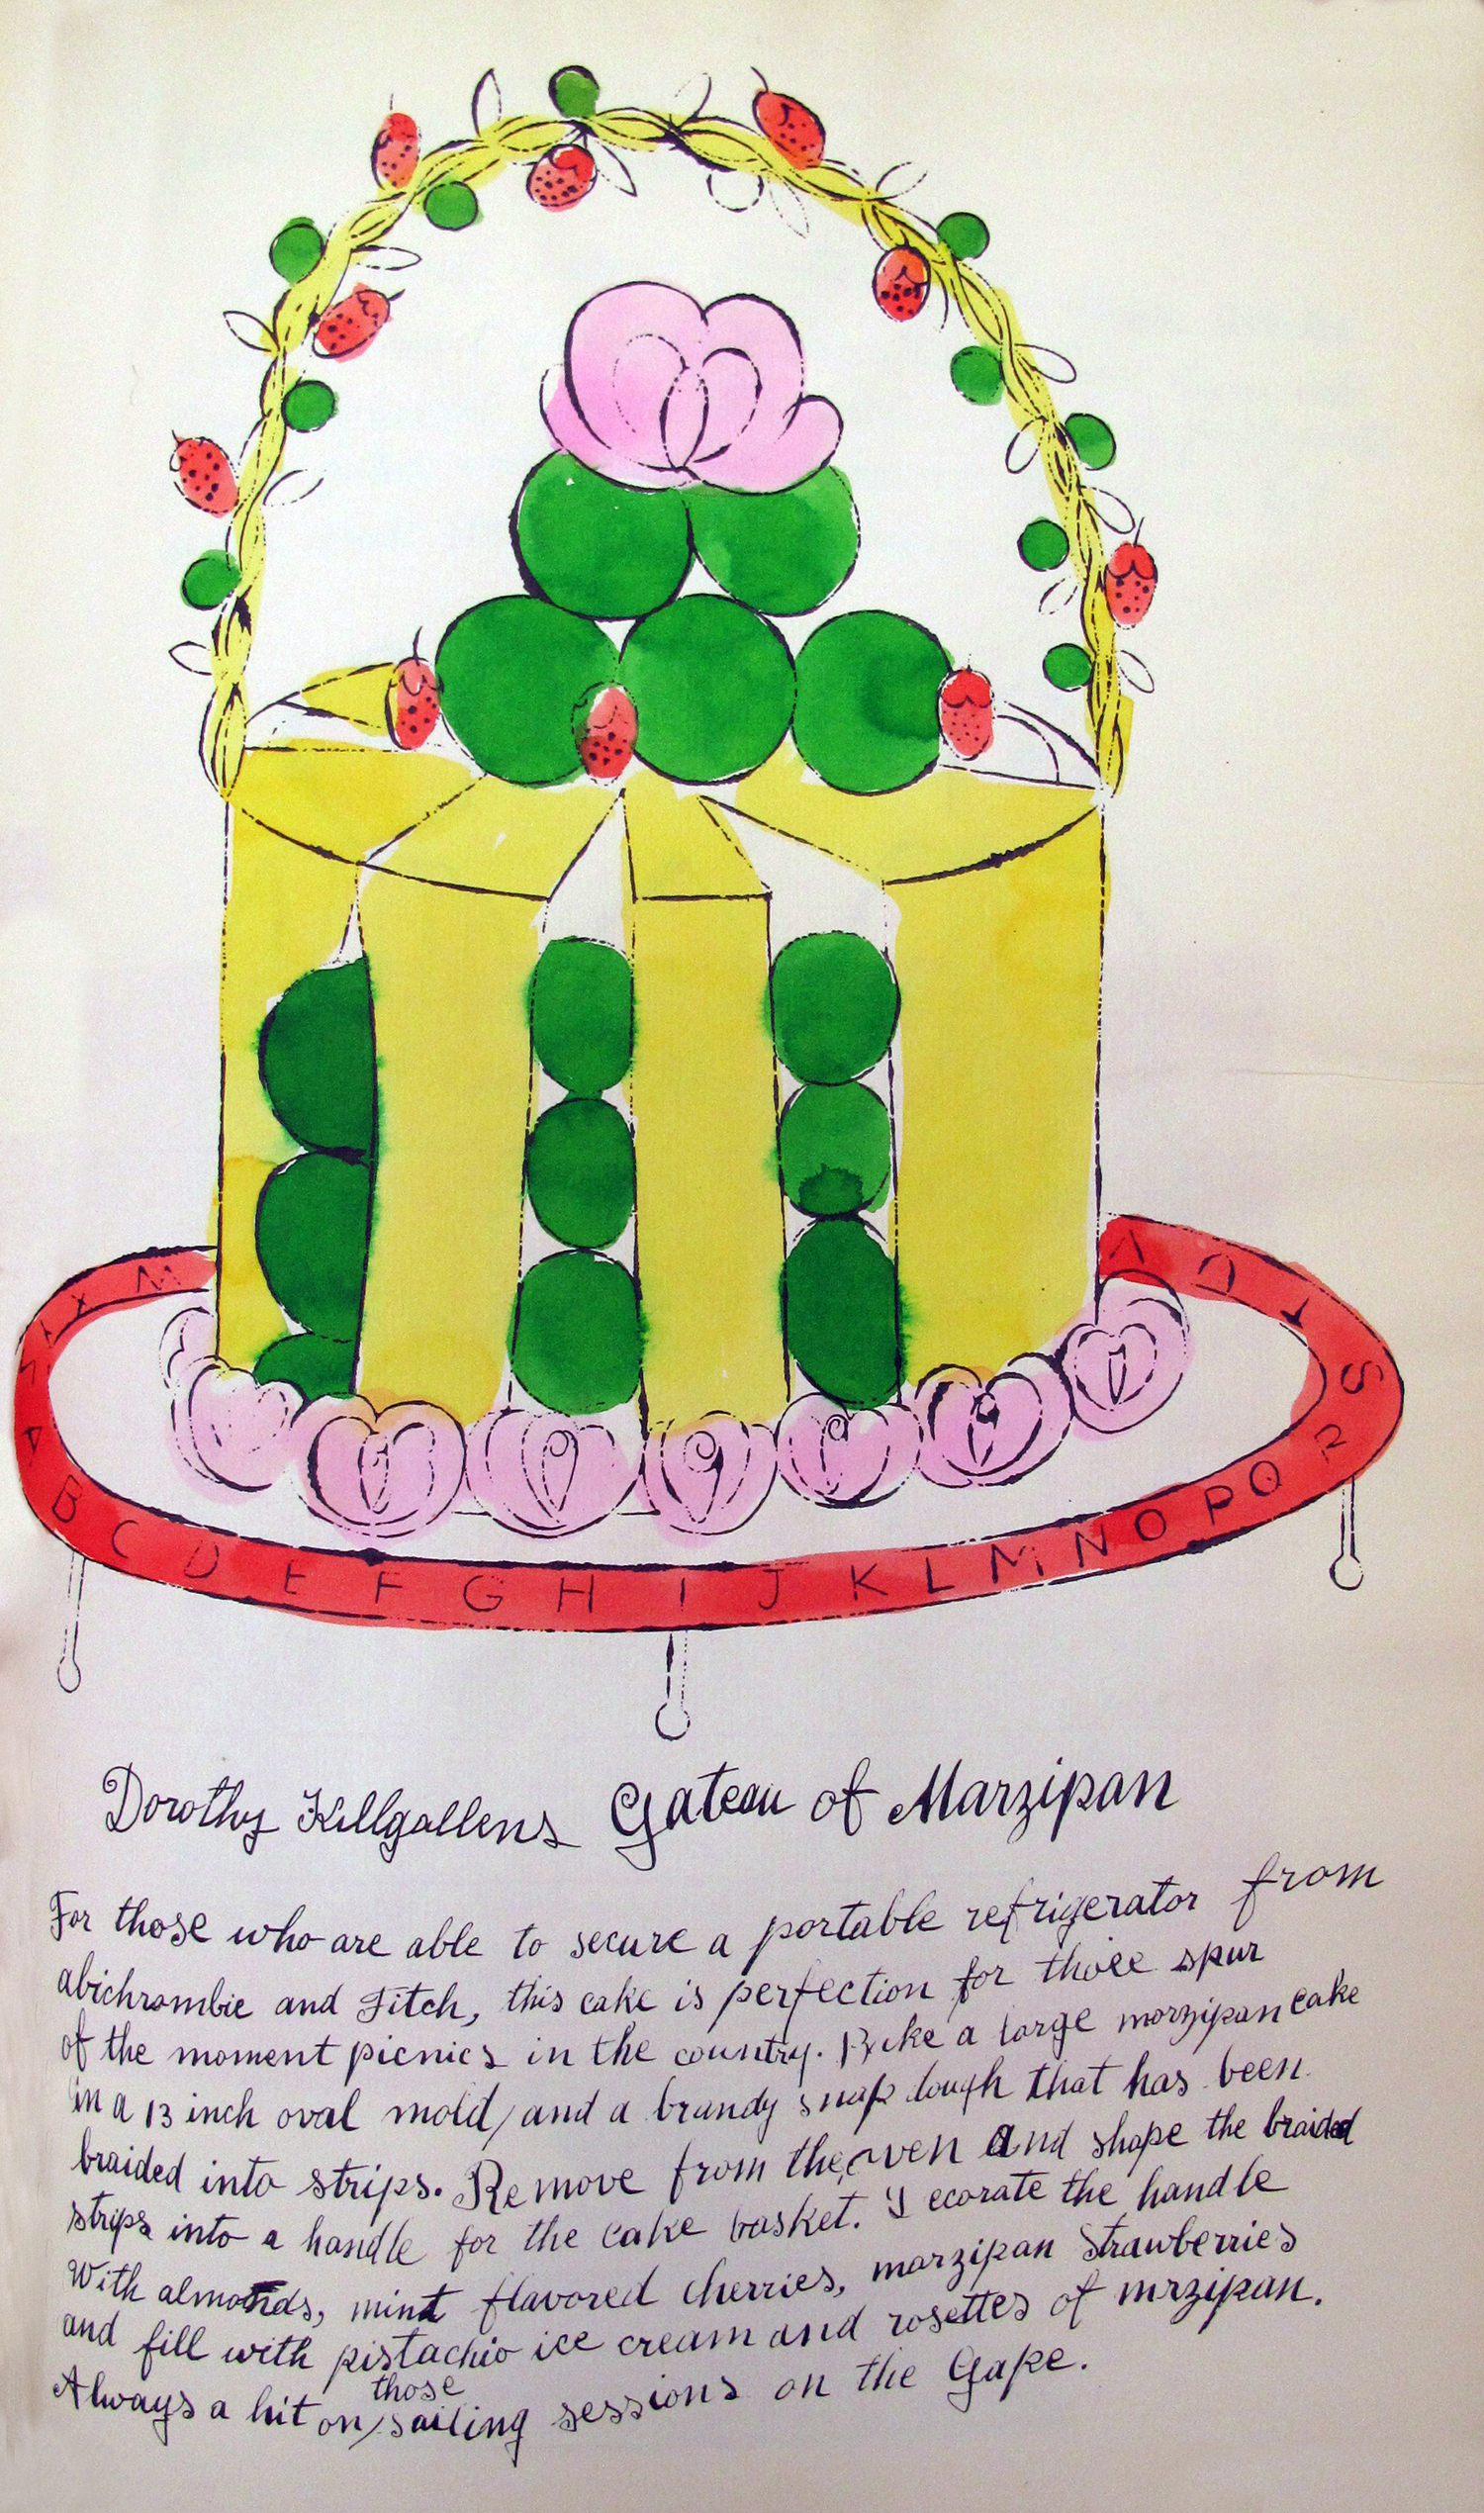 W
V
X
U
T
S
A
B C D E F G H I J K L M N O P Q R
Dorothy Killgallens Gateau of Marzipan
For those who are able to secure a portable refrigerator from
abichrombie and Fitch, this cake is perfection for those spur
of the moment picnics in the country. Bake a large marzipan cake
in a 13 inch oval mold, and a brandy snap dough that has been
braided into strips. Remove from the oven and shape the braided
strips into a handle for the cake basket. Decorate the handle
With almonds, mint flavored cherries, marzipan Strawberries
and fill with pistachio ice cream and rosettes of mrzipan.
those
Always a hit on, sailing sessions on the Gape.